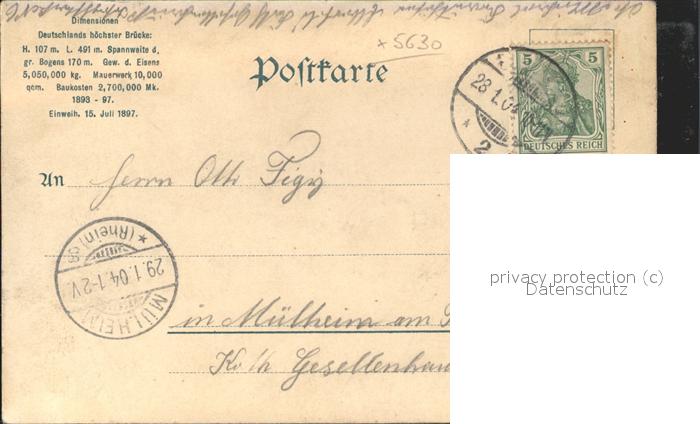 Dimensionen
Deutschlands höchster Brücke:
H. 107 m. L. 491 m. Spannweite d.
gr. Bogens 170 m. Gew. d. Eisens
5,050,000 kg. Mauerwerk 10,000
qcm. Baukosten 2,700,000 Mk.
1893 - 97.
Einweih. 15. Juli 1897.
x 5630
Postkarte
28.1.04
2
5 5
DEUTSCHES REICH
An Herrn Otto
MÜLHEIM
29.1.04.1-2V.
* (Rhein) *
in Mülheim am
Kath Gesellenhau
privacy protection (c)
Datenschutz